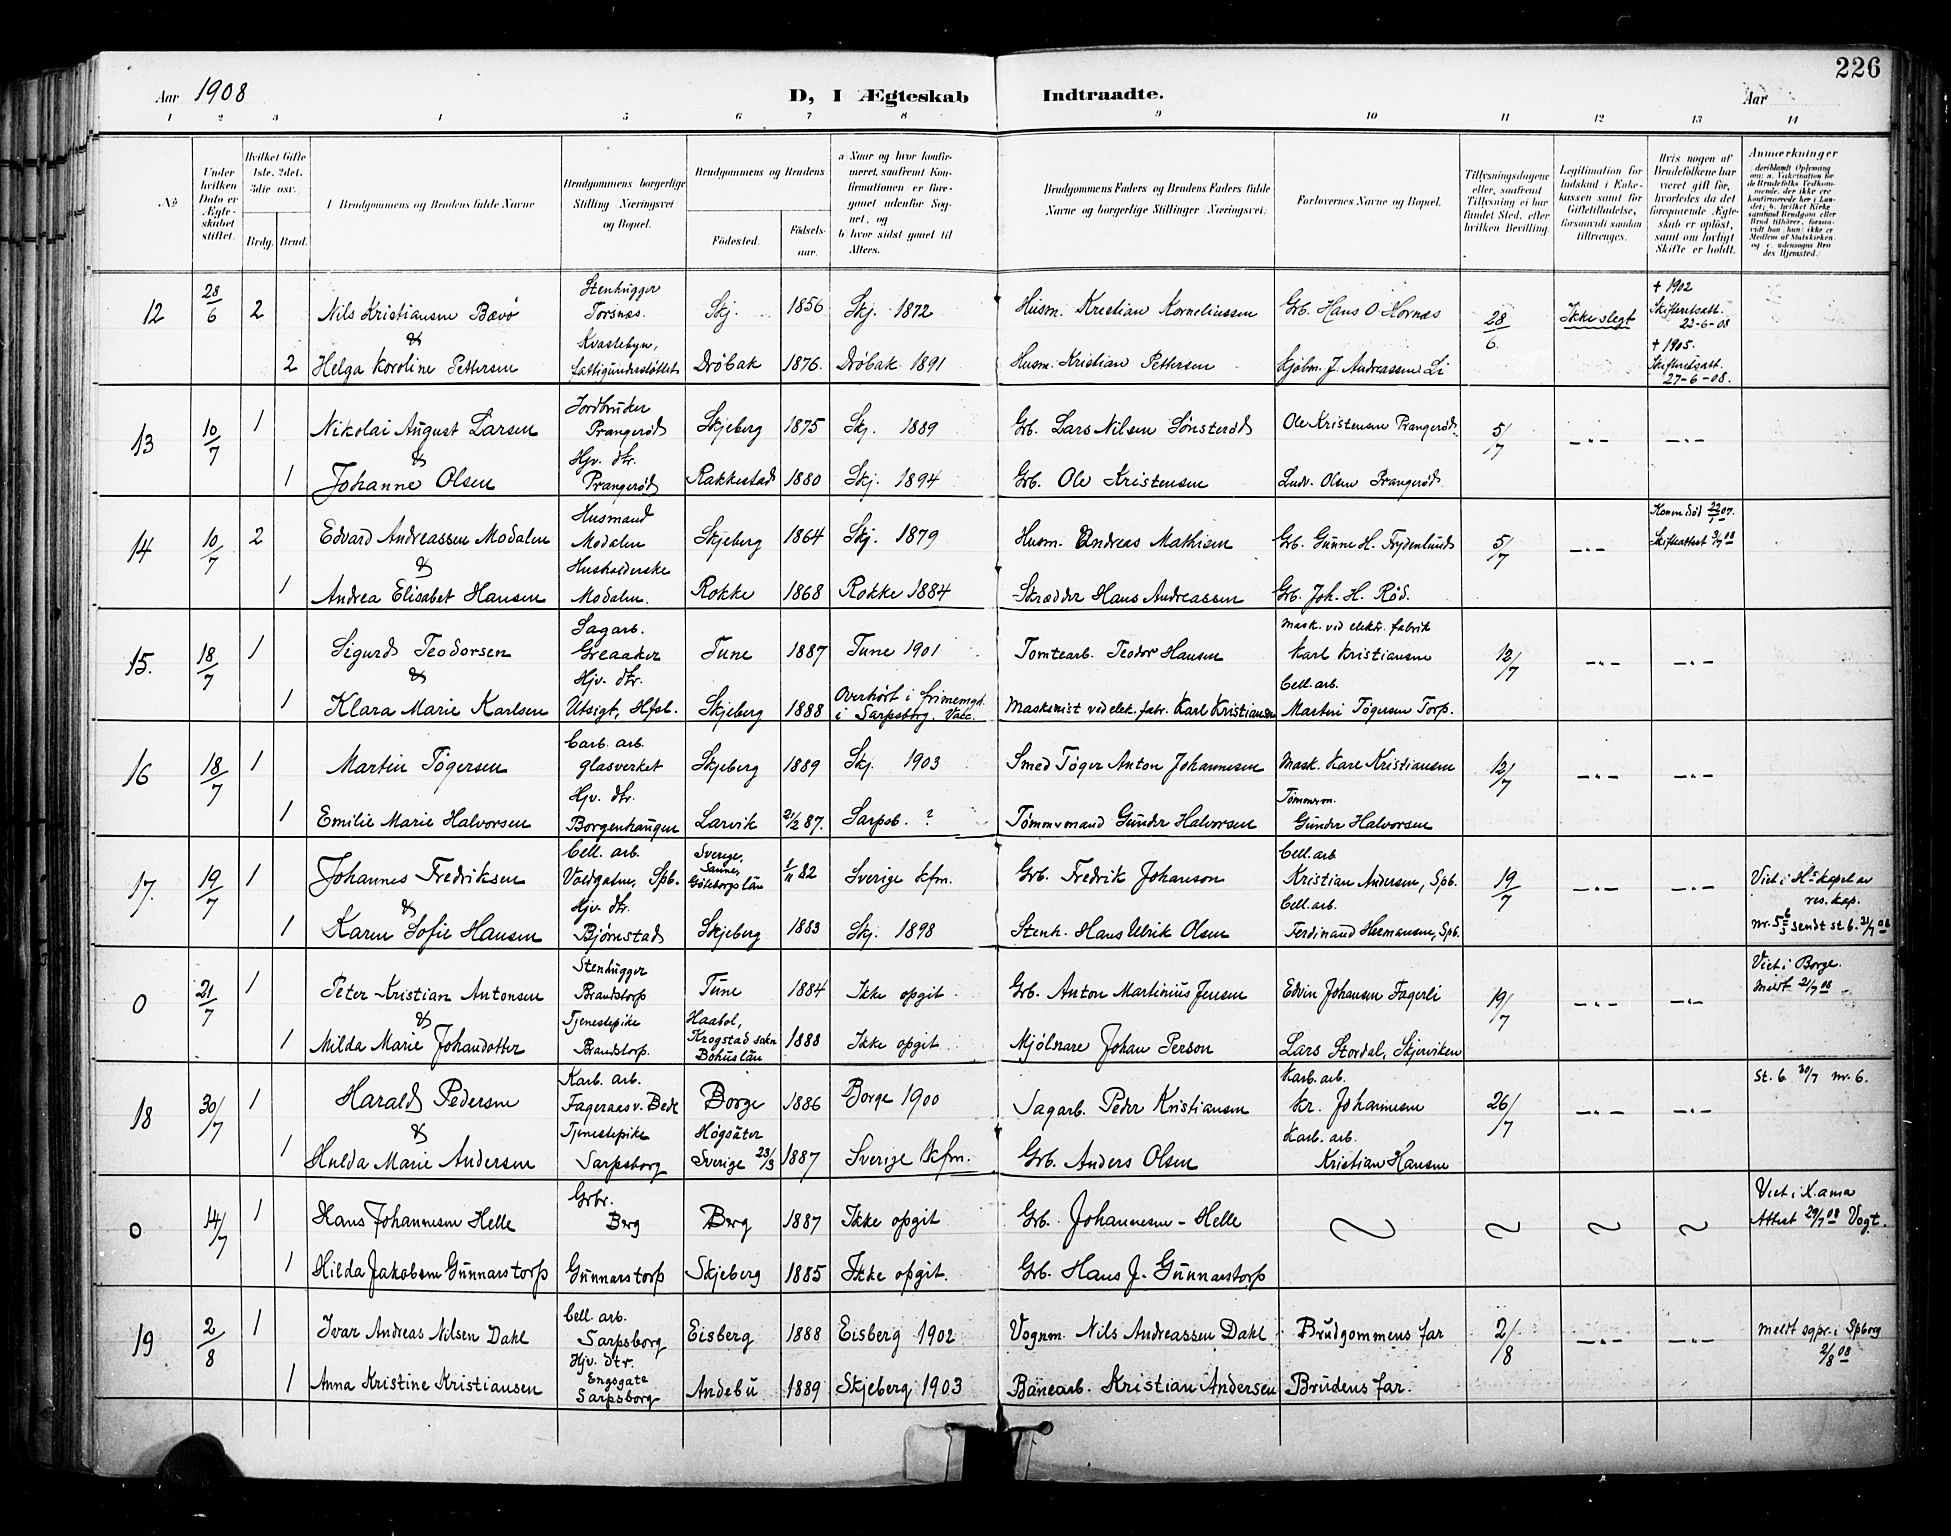 226
Aar 1908
D, I Ægteskab Indtraadte.
Aar
1 2 3 4 5 6 7 8 9 10 11 12 13 14
No
Under hvilken Dato er Ægteskabet stiftet.
Hvilket Gifte 1ste, 2det, 3die osv.
Brdg. Brud.
Brudgommens og Brudens fulde Navne
Brudgommens borgerlige Stilling (Næringsvei) og Bopæl.
Brudgommens og Brudens
Fødested. Fødselsaar.
a Naar og hvor konfirmeret, saafremt Konfirmationen er foregaaet udenfor Sognet, og
b hvor sidst gaaet til Alters.
Brudgommens Faders og Brudens Faders fulde Navne og borgerlige Stillinger (Næringsvei).
Forlovernes Navne og Bopæl.
Tillysningsdagene eller, saafremt Tillysning ei har fundet Sted, efter hvilken Bevilling.
Legitimation for Indskud i Enkekassen samt for Giftetilladelse, forsaavidt saadan tiltrænges.
Hvis nogen af Brudefolkene har været gift før, hvorledes da det foregaaende Ægteskab er opløst, samt om lovligt Skifte er holdt.
Anmærkninger
12 28/6 2 Nils Kristiansen Bævø Stenhugger Torsnæs. Skj. 1856 Skj. 1872 Husm. Kristian Korneliussen Grb. Hans O Hornæs 28/6. Ikke slegt + 1902 Skifteretsatt. 22-6-08
&
2 Helga Karoline Pettersen Kvastebyn, fattigunderstøttet Drøbak 1876. Drøbak 1891 Husm. Kristian Pettersen Kjøbm. J. Andreassen Li + 1905. Skifteretsatt. 27-6-08.
13 10/7 1 Nikolai August Larsen Jordbruker Prangerød Skjeberg 1875 Skj. 1889 Grb. Lars Nilsen Sønsterød Ole Kristensen Prangerød. 5/7 —"— —"—
&
1 Johanne Olsen Hjv. dtr. Prangerød Rakkestad 1880 Skj. 1894 Grb. Ole Kristensen Ludv. Olsen Prangerød.
14 10/7 2 Edvard Andreassen Modalen Husmand Modalen Skjeberg 1864 Skj. 1879 Husm. Andreas Mathisen Grb. Gunne H. Frydenlund 5/7 —"— Konen død 22/1 07. Skifteattest 3/7 08
&
1 Andrea Elisabet Hansen Husholderske Modalen. Rokke 1868 Rokke 1884 Skrædder Hans Andreassen Grb. Joh. H. Rød.
15. 18/7 1 Sigurd Teodorsen Sagarb. Greaaker Tune 1887 Tune 1901 Tomtearb. Teodor Hansen Mask. ved elektr. fabrik Karl Kristiansen 12/7 —"— —"—
&
1 Klara Marie Karlsen Hjv. dtr. Utsigt, Hfsl. Skjeberg 1888 Overhørt i frimemgt. i Sarpsborg. Vacc. Maskinist ved elek. fabr. Karl Kristiansen Cell. arb. Martin Tøgersen Torp.
16 18/7 1 Martin Tøgersen Carb. arb. glasverket Skjeberg 1889 Skj. 1903 Smed Tøger Anton Johannesen Mask. Karl Kristiansen 12/7 —"— —"—
1 Emilie Marie Halvorsen Hjv. dtr. Borgenhaugen Larvik 21/2 87. Sarpsb. ? Tømmermand Gunder Halvorsen Tømmerm. Gunder Halvorsen
17. 19/7 1 Johannes Fredriksen Cell. arb. Voldgaten, Spb. Sverige, Sanne, Gøteborgs län 1/11 82 Sverige kfm. Grb. Fredrik Johanson Cell. arb Kristian Andersen, Spb. 19/7 —"— —"— Viet i Hs kapel av res. kap.
&
1 Karen Sofie Hansen Hjv. dtr. Bjørnstad Skjeberg 1883 Skj. 1898 Stenh. Hans Ulrik Olsen Cell. arb. Ferdinand Hermansen, Spb. nr. 5 6/5 sendt st. 6. 21/7 08
0 21/7 1 Peter Kristian Antonsen Stenhugger Brandstorp Tune 1884 Ikke opgit Grb. Anton Martinius Jensen Edvin Johansen Fagerli 19/7 —"— —"— Viet i Borge. Meldt 21/7 08
&
1 Milda Marie Johandotter Tjenestepike Brandstorp. Haabol, Krogstad sokn Bohuslän 1888 Ikke opgit Mjølnare Johan Person Lars Stordal, Skjerviken
18 30/7 1 Harald Pedersen Karb. arb. Fageraas v. Bede Borge 1886 Borge 1900 Sagarb. Peder Kristiansen Karb. arb. Kr. Johannesen 26/7 —"— —"— St. 6 30/7 nr. 6.
&
1 Hulda Marie Andersen Tjenestepike Sarpsborg Høgsäter Sverige 23/3 1887 Sverige kfm. Grb. Anders Olsen Karb. arb. Kristian Hansen
0 14/7 1 Hans Johannesen Helle Grbr. Berg Berg 1887 Ikke opgit Grb. Johannesen - Helle ~ ~ ~ ~ Viet i X.ania Attest 29/7 08 Vogt.
1 Hilda Jakobsen Gunnarstorp Gunnarstorp Skjeberg 1885 Ikke opgit. Grb. Hans J. Gunnarstorp
19 2/8 1 Ivar Andreas Nilsen Dahl Cell. arb. Sarpsborg Eisberg 1888 Eisberg 1902 Vognm. Nils Andreassen Dahl Brudgommens far 2/8 —"— —"— Meldt sgpr. i Spborg 2/8 08
1 Anna Kristine Kristiansen Hjv. dtr. Engsgate Sarpsborg Andebu 1889 Skjeberg 1903 Banearb. Kristian Andersen Brudens far.